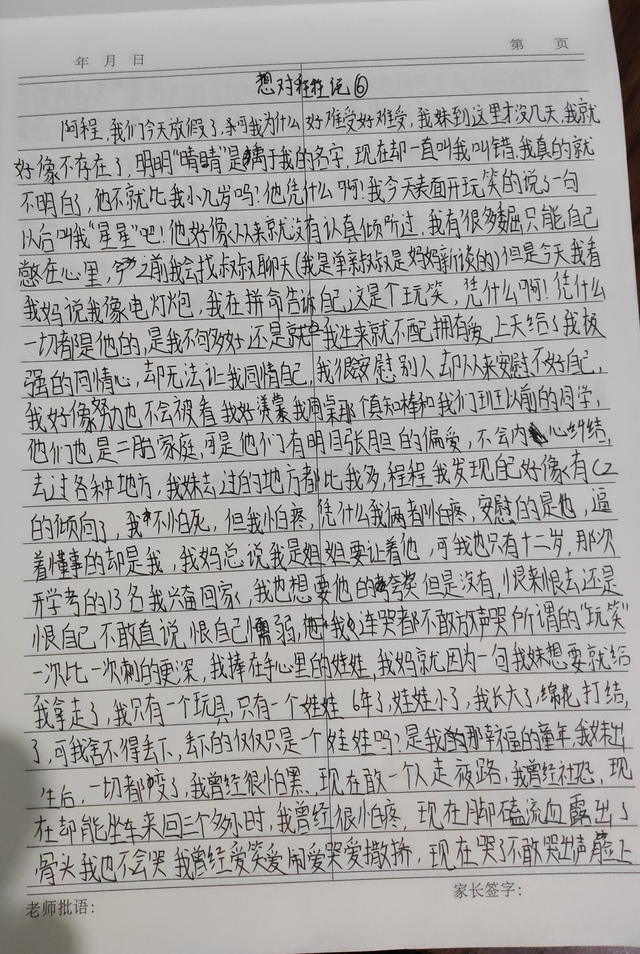 年 月 日 第 页
想对程程说⑥
阿程,我们今天放假了,可我为什么好难受好难受,我妹到这里才没几天,我就
好像不存在了,明明“晴晴”是属于我的名字,现在却一直叫我叫错,我真的就
不明白了,他不就比我小几岁吗!他凭什么啊!我今天表面开玩笑的说了一句
以后叫我“星星”吧!他好像从来就没有认真倾听过,我有很多委屈只能自己
憋在心里,之前我会找叔叔聊天(我是单亲叔叔是妈妈新谈的)但是今天我看
我妈说我像电灯炮,我在拼命告诉自己这是个玩笑,凭什么啊!凭什么
一切都是他的,是我不够好还是我生来就不配拥有爱,上天给了我极
强的同情心,却无法让我同情自己,我很会安慰别人却从来安慰不好自己,
我好像努力也不会被看,我好羡慕我周桌那个真知棒和我们班以前的同学,
他们也是二胎家庭,可是他们有明目张胆的偏爱,不会内心纠结,
去过各种地方,我妹去过的地方都比我多,程程我发现自己好像有CZ
的倾向了,我不怕死,但我怕疼,凭什么我俩者怕疼,安慰的是他,逼
着懂事的却是我,我妈总说我是姐姐要让着他,可我也只有十二岁,那次
开学考的13名我兴奋回家,我也想要他的夸奖但是没有,恨来恨去还是
恨自己不敢直说,恨自己懦弱,我连哭都不敢放声哭所谓的“玩笑”
一次比一次刺的更深,我捧在手心里的娃娃,我妈就因为一句我妹想要就给
我拿走了,我只有一个玩具,只有一个娃娃6年了,娃娃小了,我长大了,绵花打结,
了,可我舍不得丢下,丢下的仅仅只是一个娃娃吗?是我的那幸福的童年,我妹出
生后,一切都变了,我曾经很怕黑,现在敢一个人走夜路,我曾经社恐,现
在却能坐车来回三个多小时,我曾经很怕疼,现在脚磕流血露出了
骨头我也不会哭我曾经爱笑爱闹爱哭爱撒娇,现在哭了不敢哭出声脸上
老师批语: 家长签字: